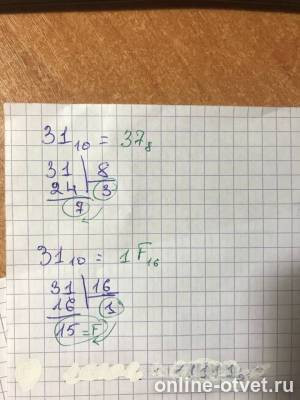 31₁₀ = 37₈
31 | 8
24 3
7
31₁₀ = 1F₁₆
31 | 16
16 1
15 = F
online-otvet.ru